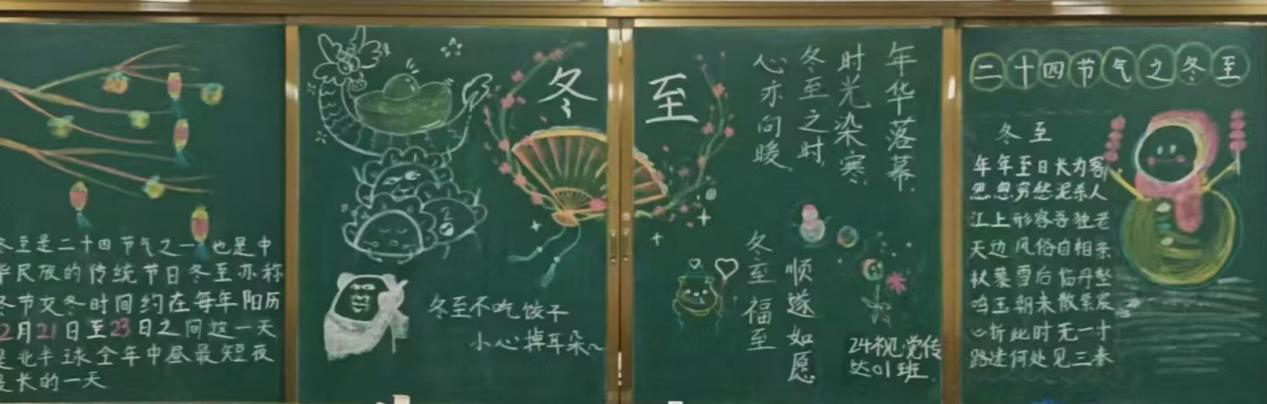 冬至是二十四节气之一也是中
华民族的传统节日冬至亦称
冬节交冬时间约在每年阳历
12月21日至23日之间这一天
是北半球全年中昼最短夜
最长的一天
冬至
冬至不吃饺子
小心掉耳朵~
年华落幕
时光染寒
冬至之时
心亦向暖
冬至福至
顺遂如愿
24视觉传
达01班
二十四节气之冬至
冬至
年年至日长为客
忽忽穷愁泥杀人
江上形容吾独老
天边风俗自相亲
杖藜雪后临丹壑
鸣玉朝来散紫宸
心折此时无一寸
路迷何处见三秦